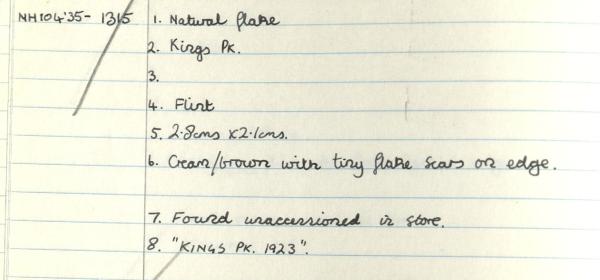 NH104'35- 1315 1. Natural flake
2. Kings Pk.
3.
4. Flint
5. 2·8cms x2·1cms.
6. Cream/brown with tiny flake scars on edge.
7. Found unaccessioned in store.
8. "KINGS PK. 1923".